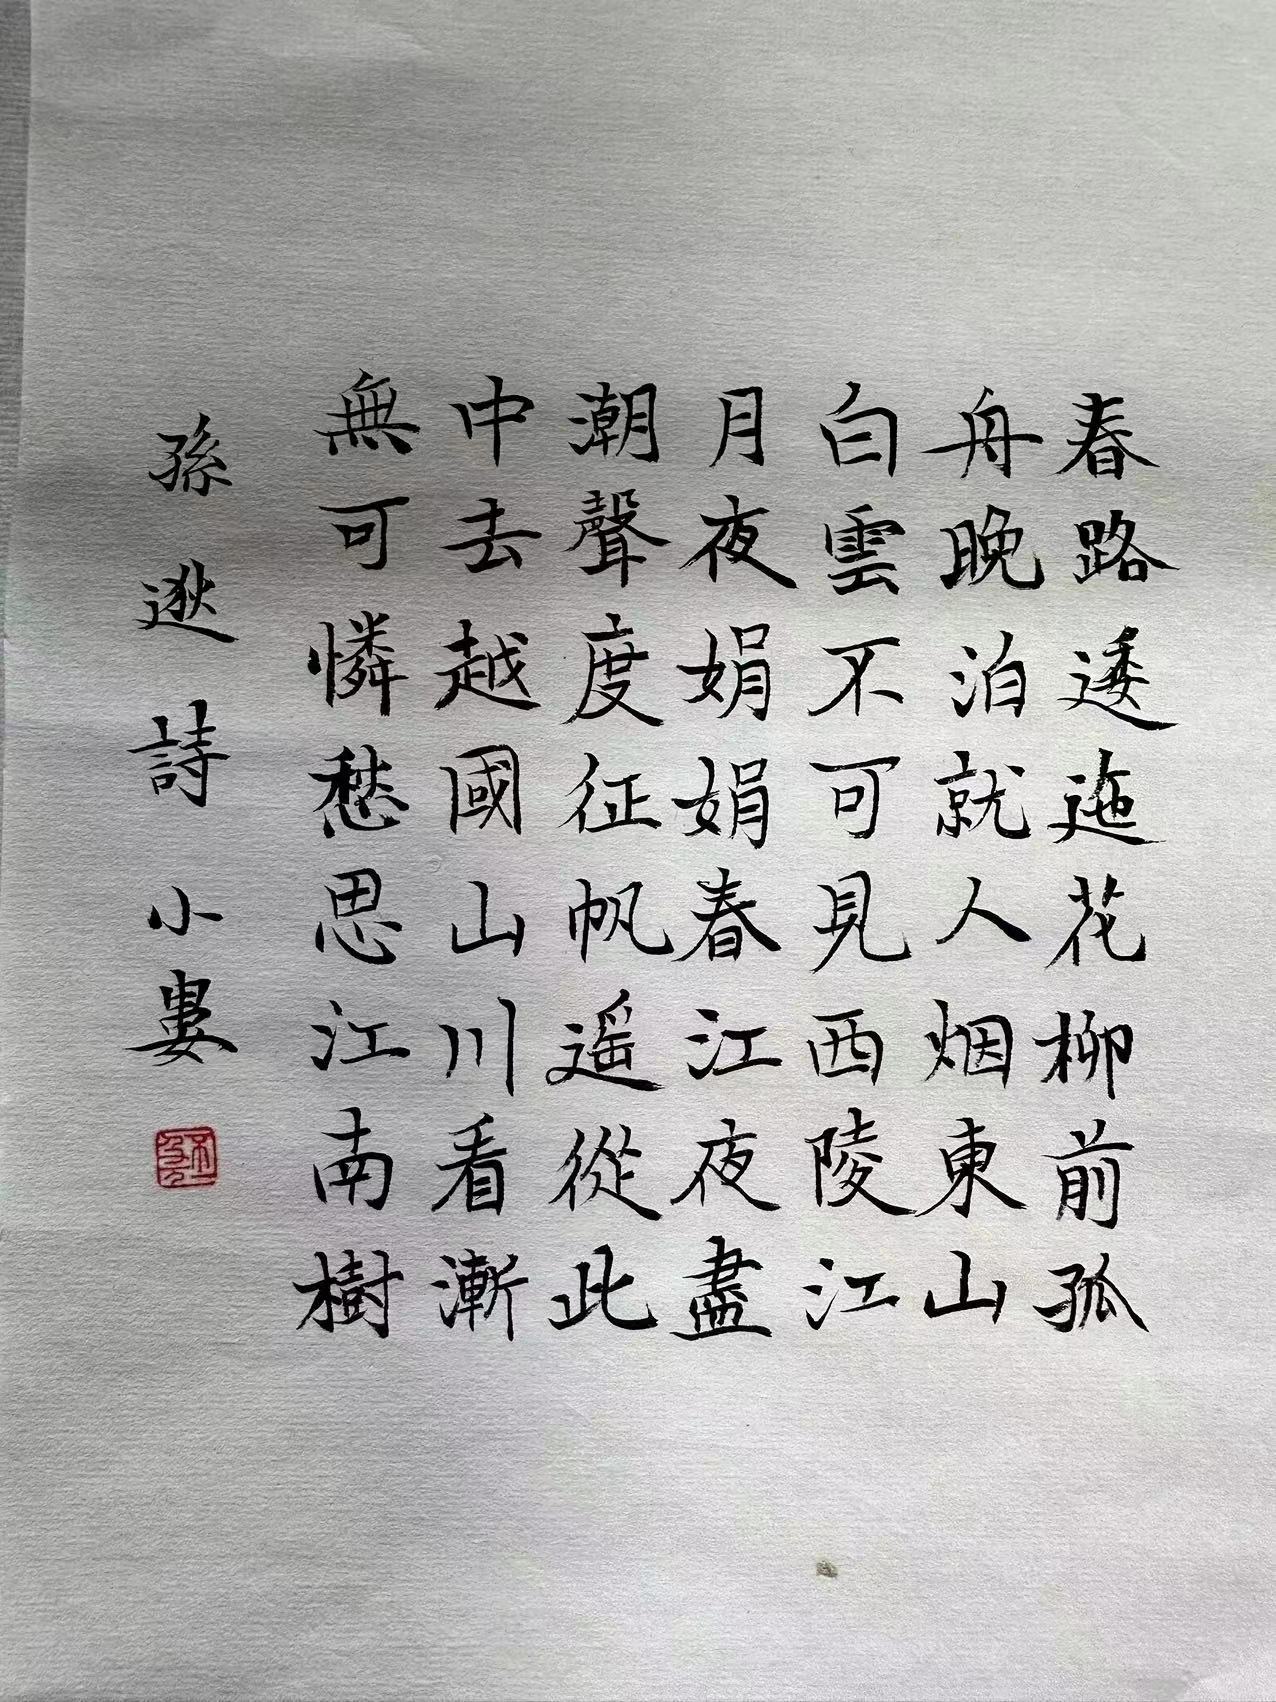 春路逶迤花柳前孤
舟晚泊就人烟東山
白雲不可見西陵江
月夜娟娟春江夜盡
潮聲度征帆遥從此
中去越國山川看漸
無可憐愁思江南樹
孫逖詩 小婁